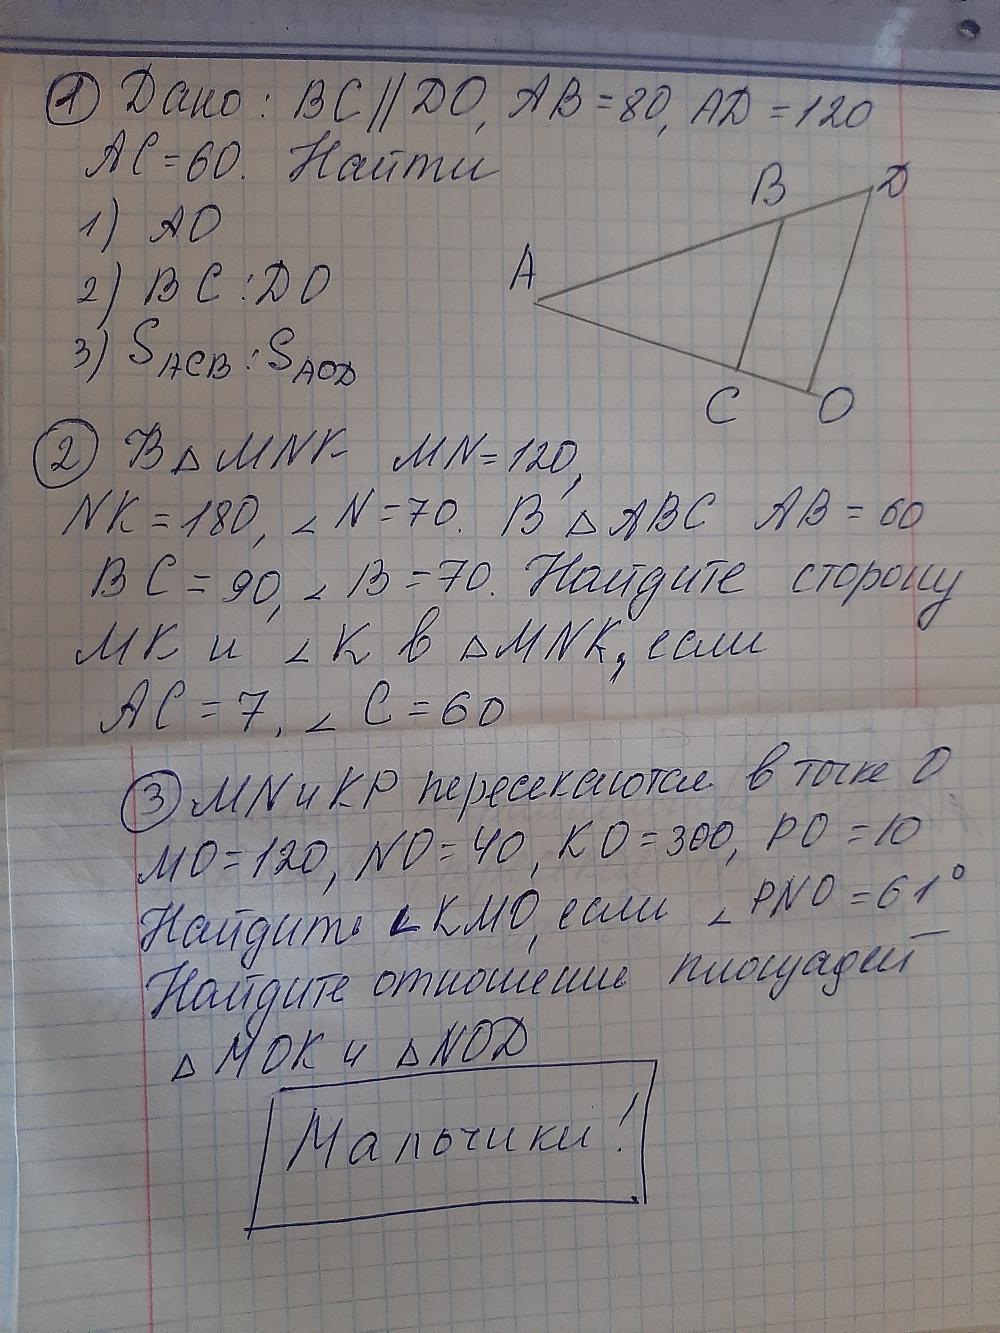 ① Дано: BC//DO, AB=80, AD=120
AC=60. Найти
1) AO
2) BC:DO
3) S_ACB:S_AOD
A
B
D
C
O
② В △ MNK MN=120,
NK=180, ∠N=70. В △ABC AB=60
BC=90, ∠B=70. Найдите сторону
MK и ∠K в △MNK, если
AC=7, ∠C=60
③ MN и KP пересекаются в точке O
MO=120, NO=40, KO=300, PO=10
Найдите ∠KMO, если ∠PNO=61°
Найдите отношение площадей
△MOK и △NOD
Мальчики!